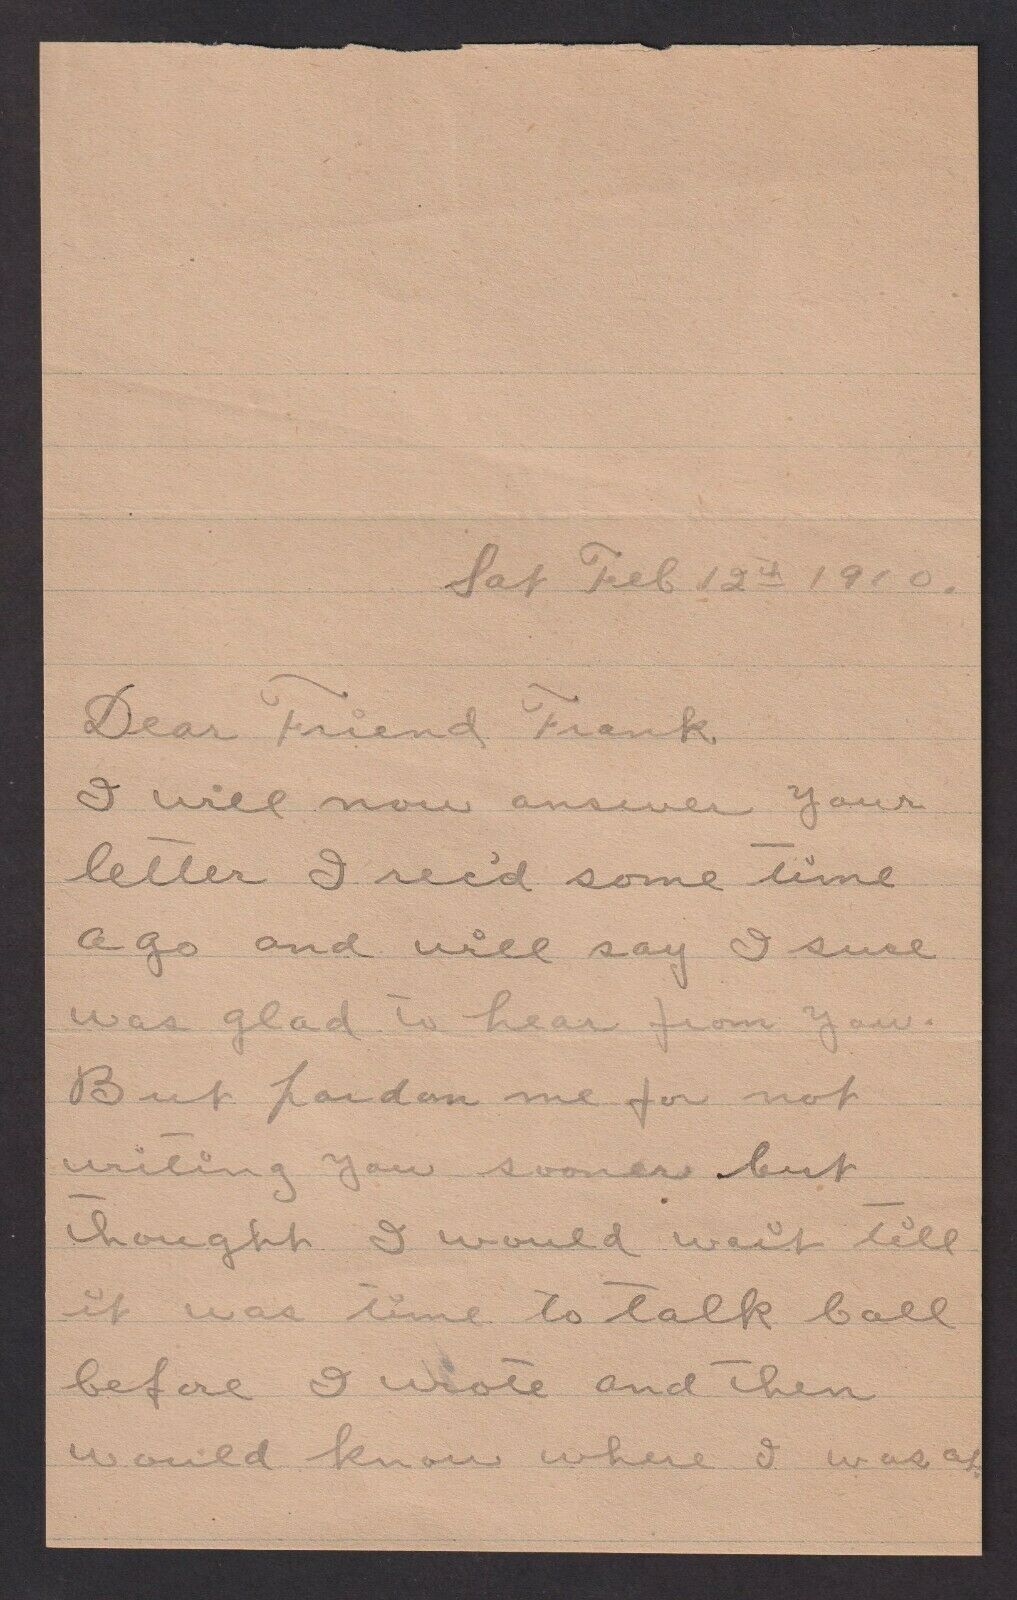 Sat Feb 12th 1910.
Dear Friend Frank
I will now answer your
letter I rec'd some time
ago and will say I sure
was glad to hear from you.
But pardon me for not
writing you sooner but
thought I would wait till
it was time to talk ball
before I wrote and then
would know where I was at.